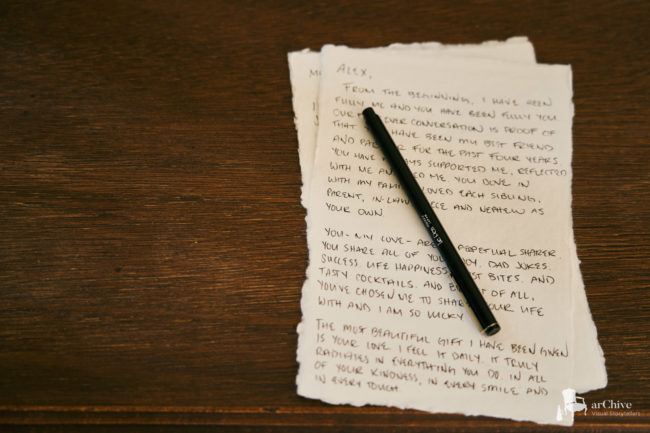 ALEX,
FROM THE BEGINNING, I HAVE BEEN
FULLY ME AND YOU HAVE BEEN FULLY YOU
OUR EVER CONVERSATION IS PROOF OF
THAT HAVE BEEN MY BEST FRIEND
AND FOR THE PAST FOUR YEARS.
YOU HAVE SUPPORTED ME, REFLECTED
WITH ME AND ME. YOU DOVE IN
WITH MY FAMILY LOVED EACH SIBLING,
PARENT, IN-LAW AND NEPHEW AS
YOUR OWN.
YOU- MY LOVE- ARE PERPETUAL SHARER.
YOU SHARE ALL OF YOUR JOY. DAD JOKES.
SUCCESS. LIFE HAPPINESS. BITES. AND
TASTY COCKTAILS. AND OF ALL,
YOU'VE CHOSEN ME TO SHARE YOUR LIFE
WITH AND I AM SO LUCKY
THE MOST BEAUTIFUL GIFT I HAVE BEEN GIVEN
IS YOUR LOVE. I FEEL IT DAILY. IT TRULY
RADIATES IN EVERYTHING YOU DO. IN ALL
OF YOUR KINDNESS, IN EVERY SMILE AND
IN EVERY TOUCH.
arChive
Visual Storytellers